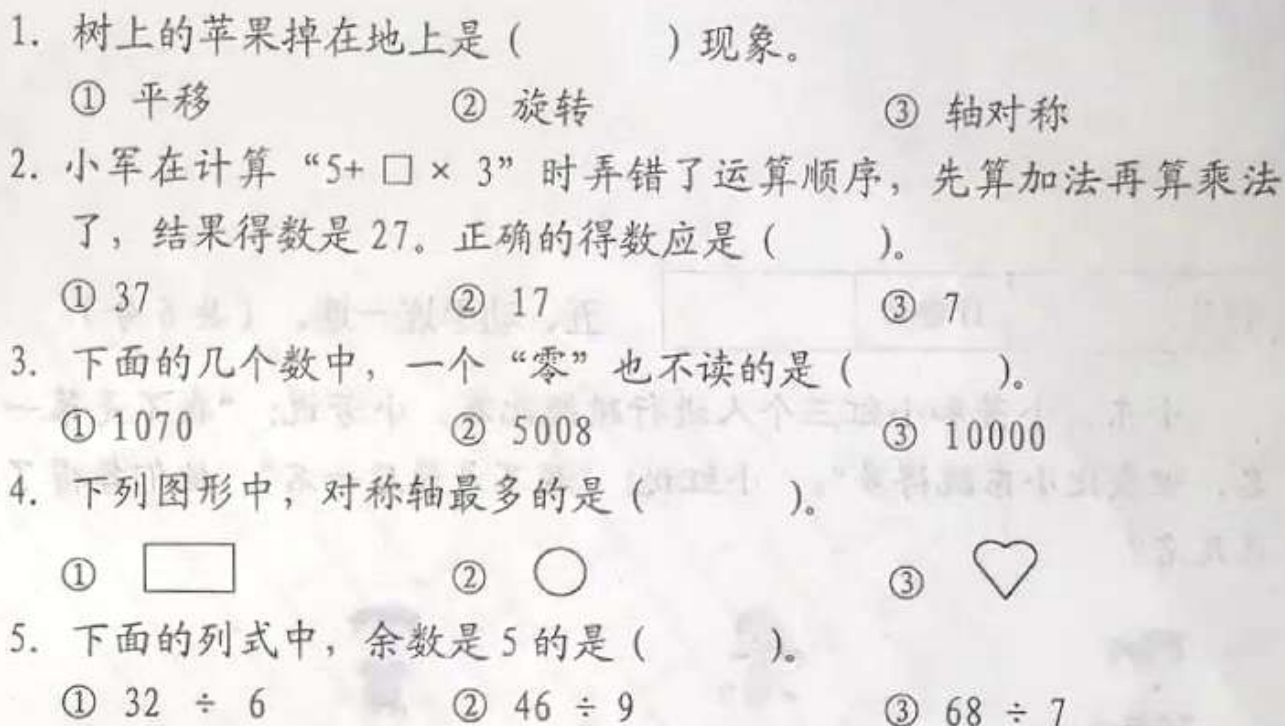 1. 树上的苹果掉在地上是（  ）现象。
① 平移  ② 旋转  ③ 轴对称
2. 小军在计算“5+ □ × 3”时弄错了运算顺序，先算加法再算乘法
了，结果得数是 27。正确的得数应是（  ）。
① 37  ② 17  ③ 7
3. 下面的几个数中，一个“零”也不读的是（  ）。
① 1070  ② 5008  ③ 10000
4. 下列图形中，对称轴最多的是（  ）。
①  ②  ③
5. 下面的列式中，余数是 5 的是（  ）。
① 32 ÷ 6  ② 46 ÷ 9  ③ 68 ÷ 7